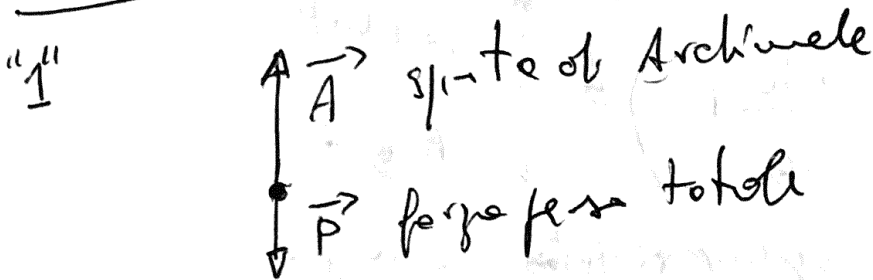 "1"
A⃗ spinta di Archimede
P⃗ forza peso totale